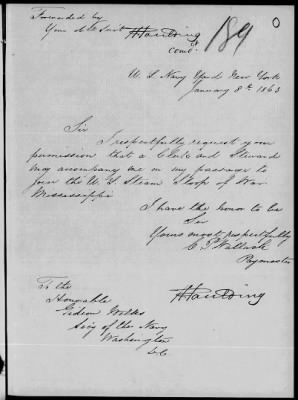 Forwarded by
Your Obt Servt
HPaulding
Comdt
189
U. S. Navy Yard New York
January 8th 1863
Sir
I respectfully request your
permission that a Clerk and Steward
may accompany me on my passage to
join the U. S. Steam Sloop of War
Mississippi
I have the honor to be
Sir
Yours most respectfully
C. P. Wallach
Paymaster
To the
Honorable
Gideon Welles
Secy of the Navy
Washington
D.C.
HPaulding